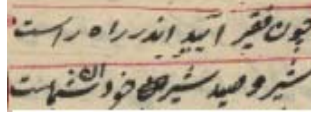 چون فقیر آیید اندر راه راست
شیر و صید شیر خود آن شماست